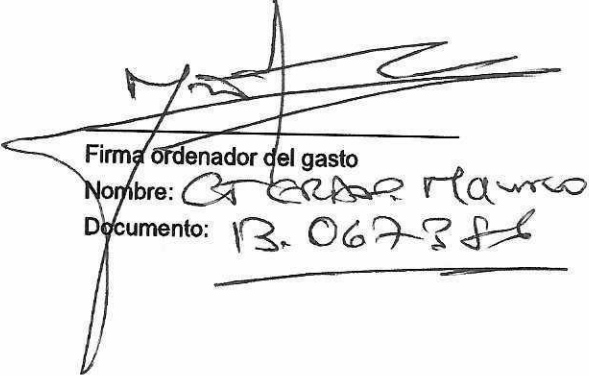 Firma ordenador del gasto
Nombre: Mauricio
Documento: 13.067386